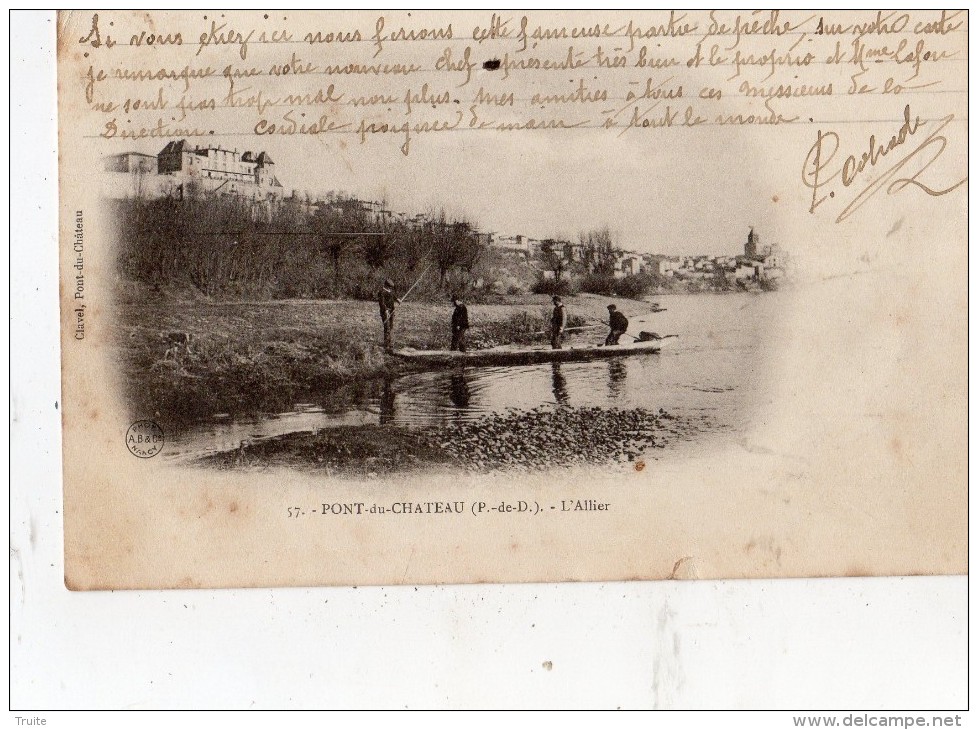 Si vous étiez ici nous ferions cette fameuse partie de pêche, sur votre carte
je remarque que votre nouveau chef représente très bien et le proprio et Mme Lafon
ne sont pas trop mal non plus. Mes amitiés à tous ces Messieurs de la
Direction. Cordiale poignée de main à tout le monde.
Clavel, Pont-du-Château
PHOT
A.B & Cie
NANCY
57. - PONT-du-CHATEAU (P.-de-D.). - L'Allier
Truite
www.delcampe.net